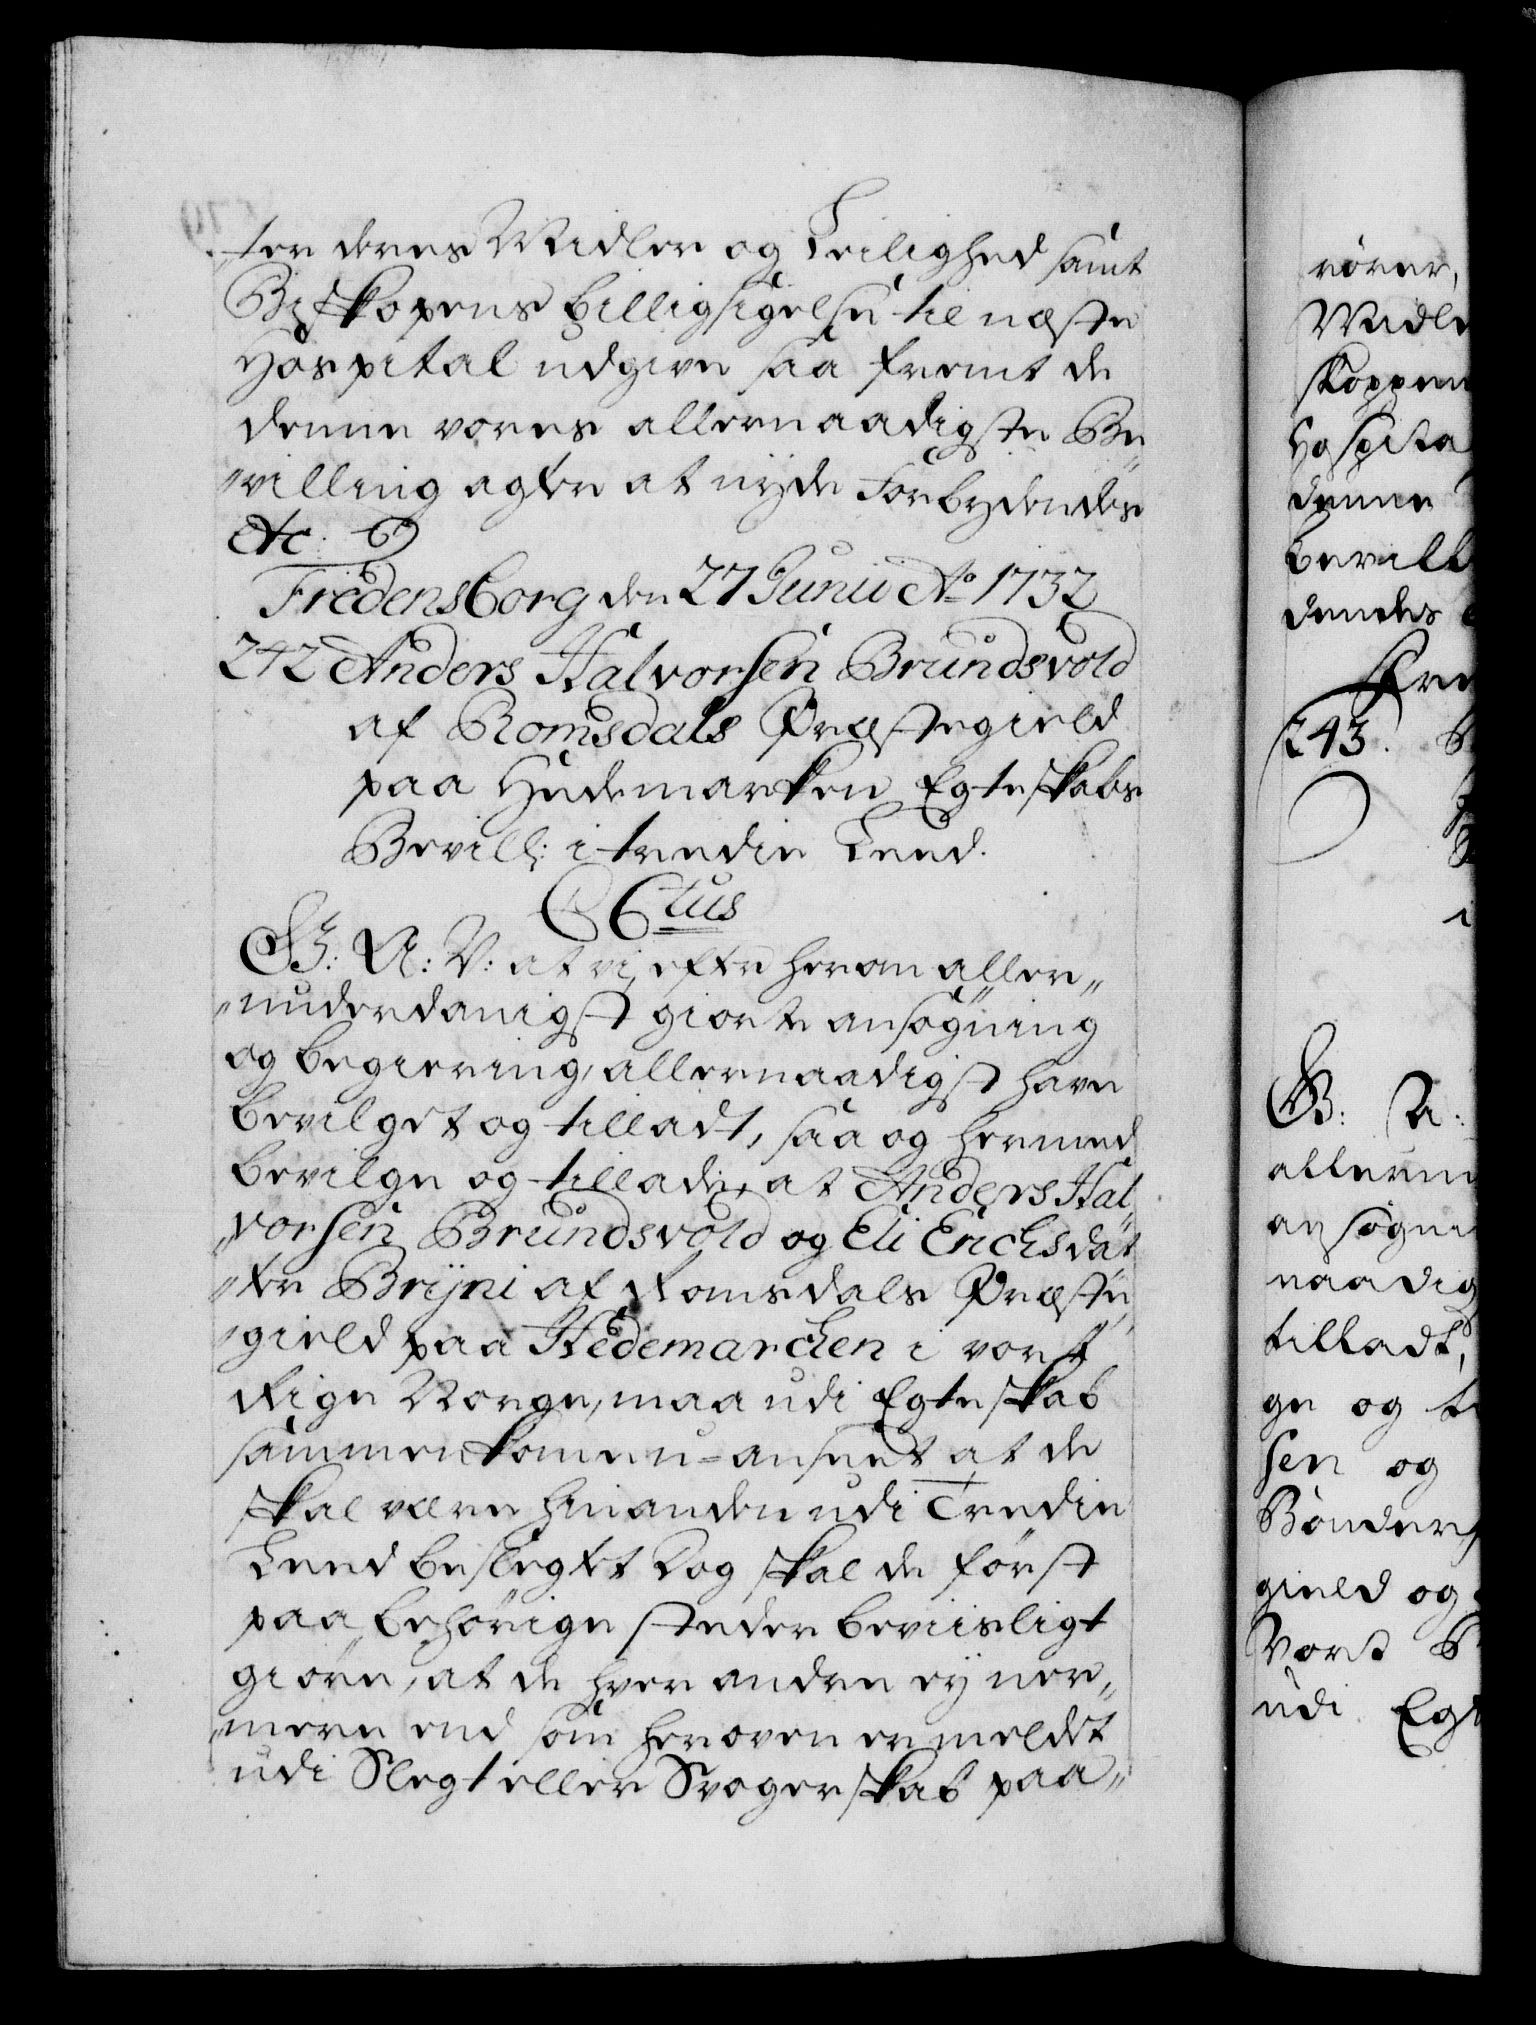 ter deres Midler og Leilighed samt
Biskopens billigsigelse til næste
Hospital udgive saa fremt de
denne vores allernaadigste Be„
„villing agter at nyde Forbydendes
etc.
Fredensborg den 27 Junii Ao 1732
242 Anders Halvorsen Brundsvold
af Romsdals Præstegield
paa Hedemarken Egteskabs
Bevill: i tredie Leed.
Ctus
G: A: V: at vi efter herom aller„
„underdanigst giorte ansøgning
og begiering, allernaadigst have
bevilget og tilladt, saa og hermed
bevilge og tillade, at Anders Hal„
„vorsen Brundsvold og Eli Erichsdat„
„ter Bryni af Romsdals Præste„
„gield paa Hedemarchen i vort
Rige Norge, maa udi Egteskab
sammenkomme u-anseet at de
skal være hinanden udi Tredie
Leed beslegtet Dog skal de først
paa behørige steder beviisligt
giøre, at de hver andre ey ner„
„mere end som heroven er meldet
udi Slegt eller Svogerskab paa„
rører,
Midle
skoppen
Hospita
denne
bevill
dendes
Fre
243.
G: A:
allerun
ansøgni
naadig
tilladt,
ge og ti
sen og
Bønder
gield og
Vort
udi Egt